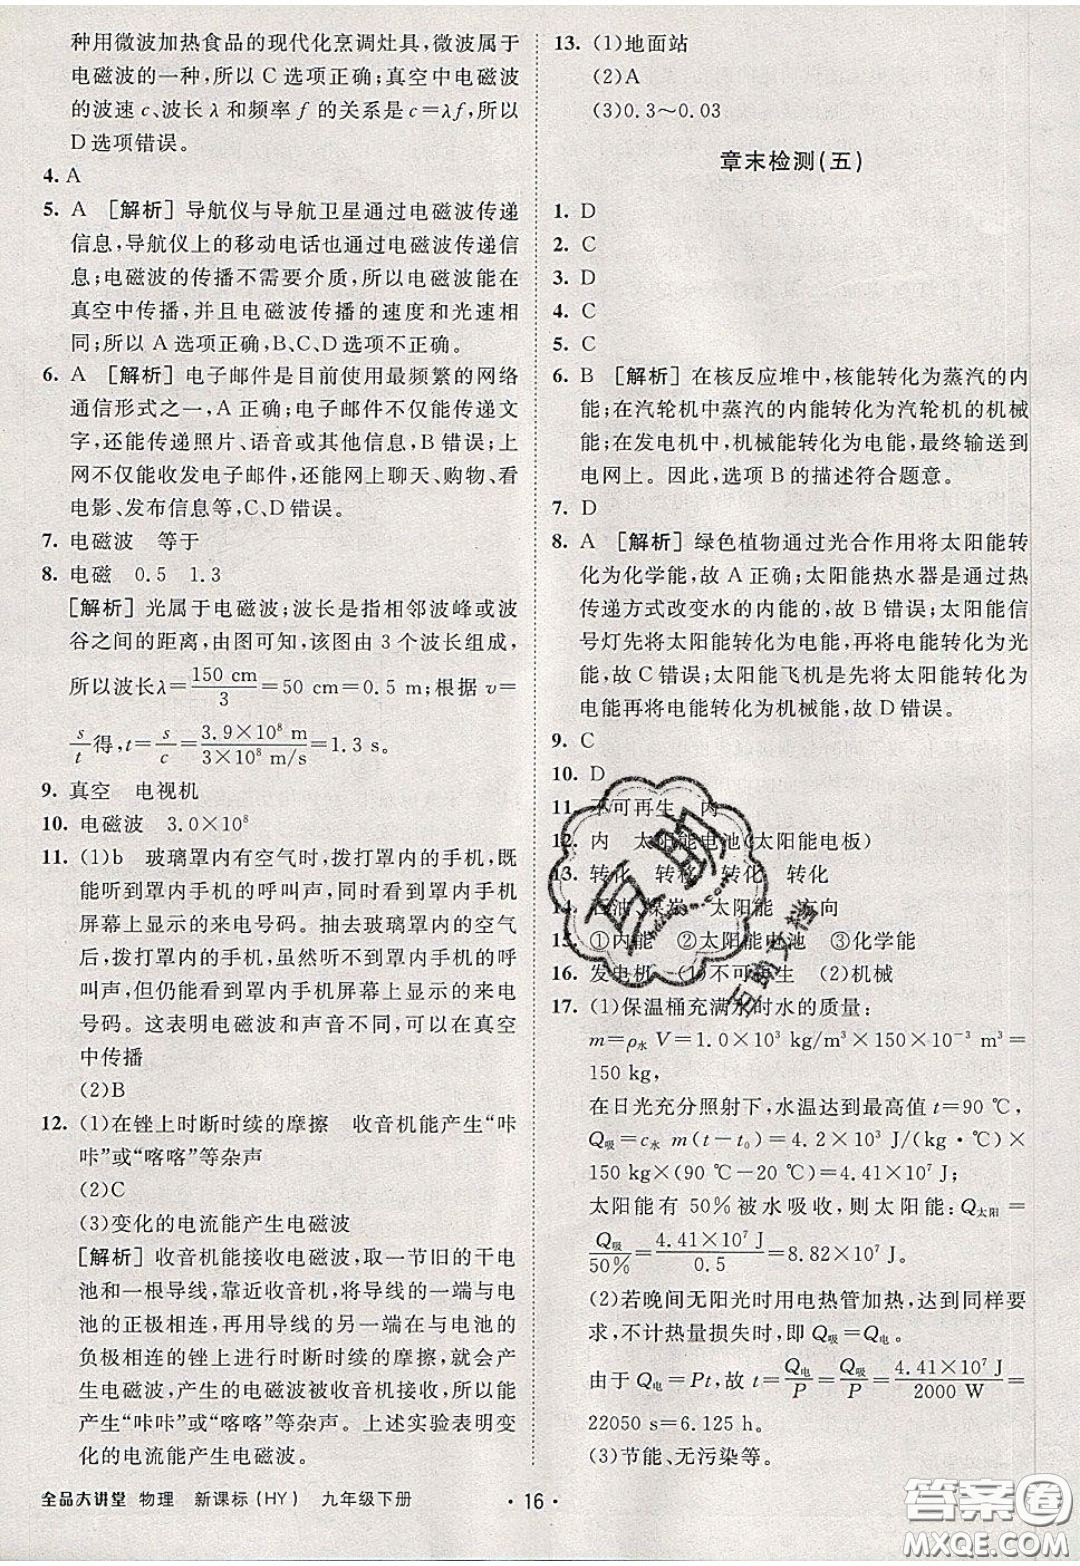 种用微波加热食品的现代化烹调灶具,微波属于
电磁波的一种,所以 C 选项正确;真空中电磁波
的波速 c、波长 λ 和频率 f 的关系是 c=λf,所以
D 选项错误。
4. A
5. A [解析]导航仪与导航卫星通过电磁波传递
信息,导航仪上的移动电话也通过电磁波传递信
息;电磁波的传播不需要介质,所以电磁波能在
真空中传播,并且电磁波传播的速度和光速相
同;所以 A 选项正确,B、C、D 选项不正确。
6. A [解析]电子邮件是目前使用最频繁的网络
通信形式之一,A 正确;电子邮件不仅能传递文
字,还能传递照片、语音或其他信息,B 错误;上
网不仅能收发电子邮件,还能网上聊天、购物、看
电影、发布信息等,C、D 错误。
7. 电磁波 等于
8. 电磁 0.5 1.3
[解析]光属于电磁波;波长是指相邻波峰或波
谷之间的距离,由图可知,该图由 3 个波长组成,
所以波长λ=150 cm/3=50 cm=0.5 m;根据 v=
s/t得,t=s/c=3.9×10⁸ m/3×10⁸ m/s=1.3 s。
9. 真空 电视机
10. 电磁波 3.0×10⁸
11. (1)b 玻璃罩内有空气时,拨打罩内的手机,既
能听到罩内手机的呼叫声,同时看到罩内手机
屏幕上显示的来电号码。抽去玻璃罩内的空气
后,拨打罩内的手机,虽然听不到罩内手机的呼
叫声,但仍能看到罩内手机屏幕上显示的来电
号码。这表明电磁波和声音不同,可以在真空
中传播
(2)B
12. (1)在锉上时断时续的摩擦 收音机能产生“咔
咔”或“喀喀”等杂声
(2)C
(3)变化的电流能产生电磁波
[解析]收音机能接收电磁波,取一节旧的干电
池和一根导线,靠近收音机,将导线的一端与电
池的正极相连,再用导线的另一端在与电池的
负极相连的锉上进行时断时续的摩擦,就会产
生电磁波,产生的电磁波被收音机接收,所以能
产生“咔咔”或“喀喀”等杂声。上述实验表明变
化的电流能产生电磁波。
13. (1)地面站
(2)A
(3)0.3~0.03
章末检测(五)
1. D
2. C
3. D
4. C
5. C
6. B [解析]在核反应堆中,核能转化为蒸汽的内
能;在汽轮机中蒸汽的内能转化为汽轮机的机械
能;在发电机中,机械能转化为电能,最终输送到
电网上。因此,选项 B 的描述符合题意。
7. D
8. A [解析]绿色植物通过光合作用将太阳能转
化为化学能,故 A 正确;太阳能热水器是通过热
传递方式改变水的内能的,故 B 错误;太阳能信
号灯先将太阳能转化为电能,再将电能转化为光
能,故 C 错误;太阳能飞机是先将太阳能转化为
电能再将电能转化为机械能,故 D 错误。
9. C
10. D
11. 不可再生 内
12. 内 太阳能电池(太阳能电板)
13. 转化 转移 转化 转化
14. 石油、煤炭 太阳能 方向
15. ①内能 ②太阳能电池 ③化学能
16. 发电机 (1)不可再生 (2)机械
17. (1)保温桶充满水时水的质量:
m=ρ水 V=1.0×10³ kg/m³×150×10⁻³ m³=
150 kg,
在日光充分照射下,水温达到最高值 t=90 ℃,
Q吸=c水 m(t-t₀)=4.2×10³ J/(kg·℃)×
150 kg×(90 ℃-20 ℃)=4.41×10⁷ J;
太阳能有 50%被水吸收,则太阳能:Q太阳=
Q吸/50%=4.41×10⁷ J/0.5=8.82×10⁷ J。
(2)若晚间无阳光时用电热管加热,达到同样要
求,不计热量损失时,即 Q吸=Q电。
由于 Q电=Pt,故 t=Q电/P=Q吸/P=4.41×10⁷ J/2000 W=
22050 s=6.125 h。
(3)节能、无污染等。
全品大讲堂 物理 新课标(HY) 九年级下册
· 16 ·
互助
百助文档
答案圈
MXQE.COM